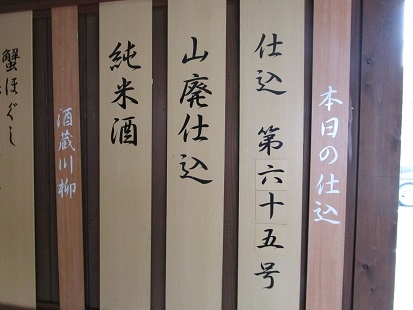 本日の仕込
仕込 第六十五号
山廃仕込
純米酒
酒蔵川柳
蟹ほぐし